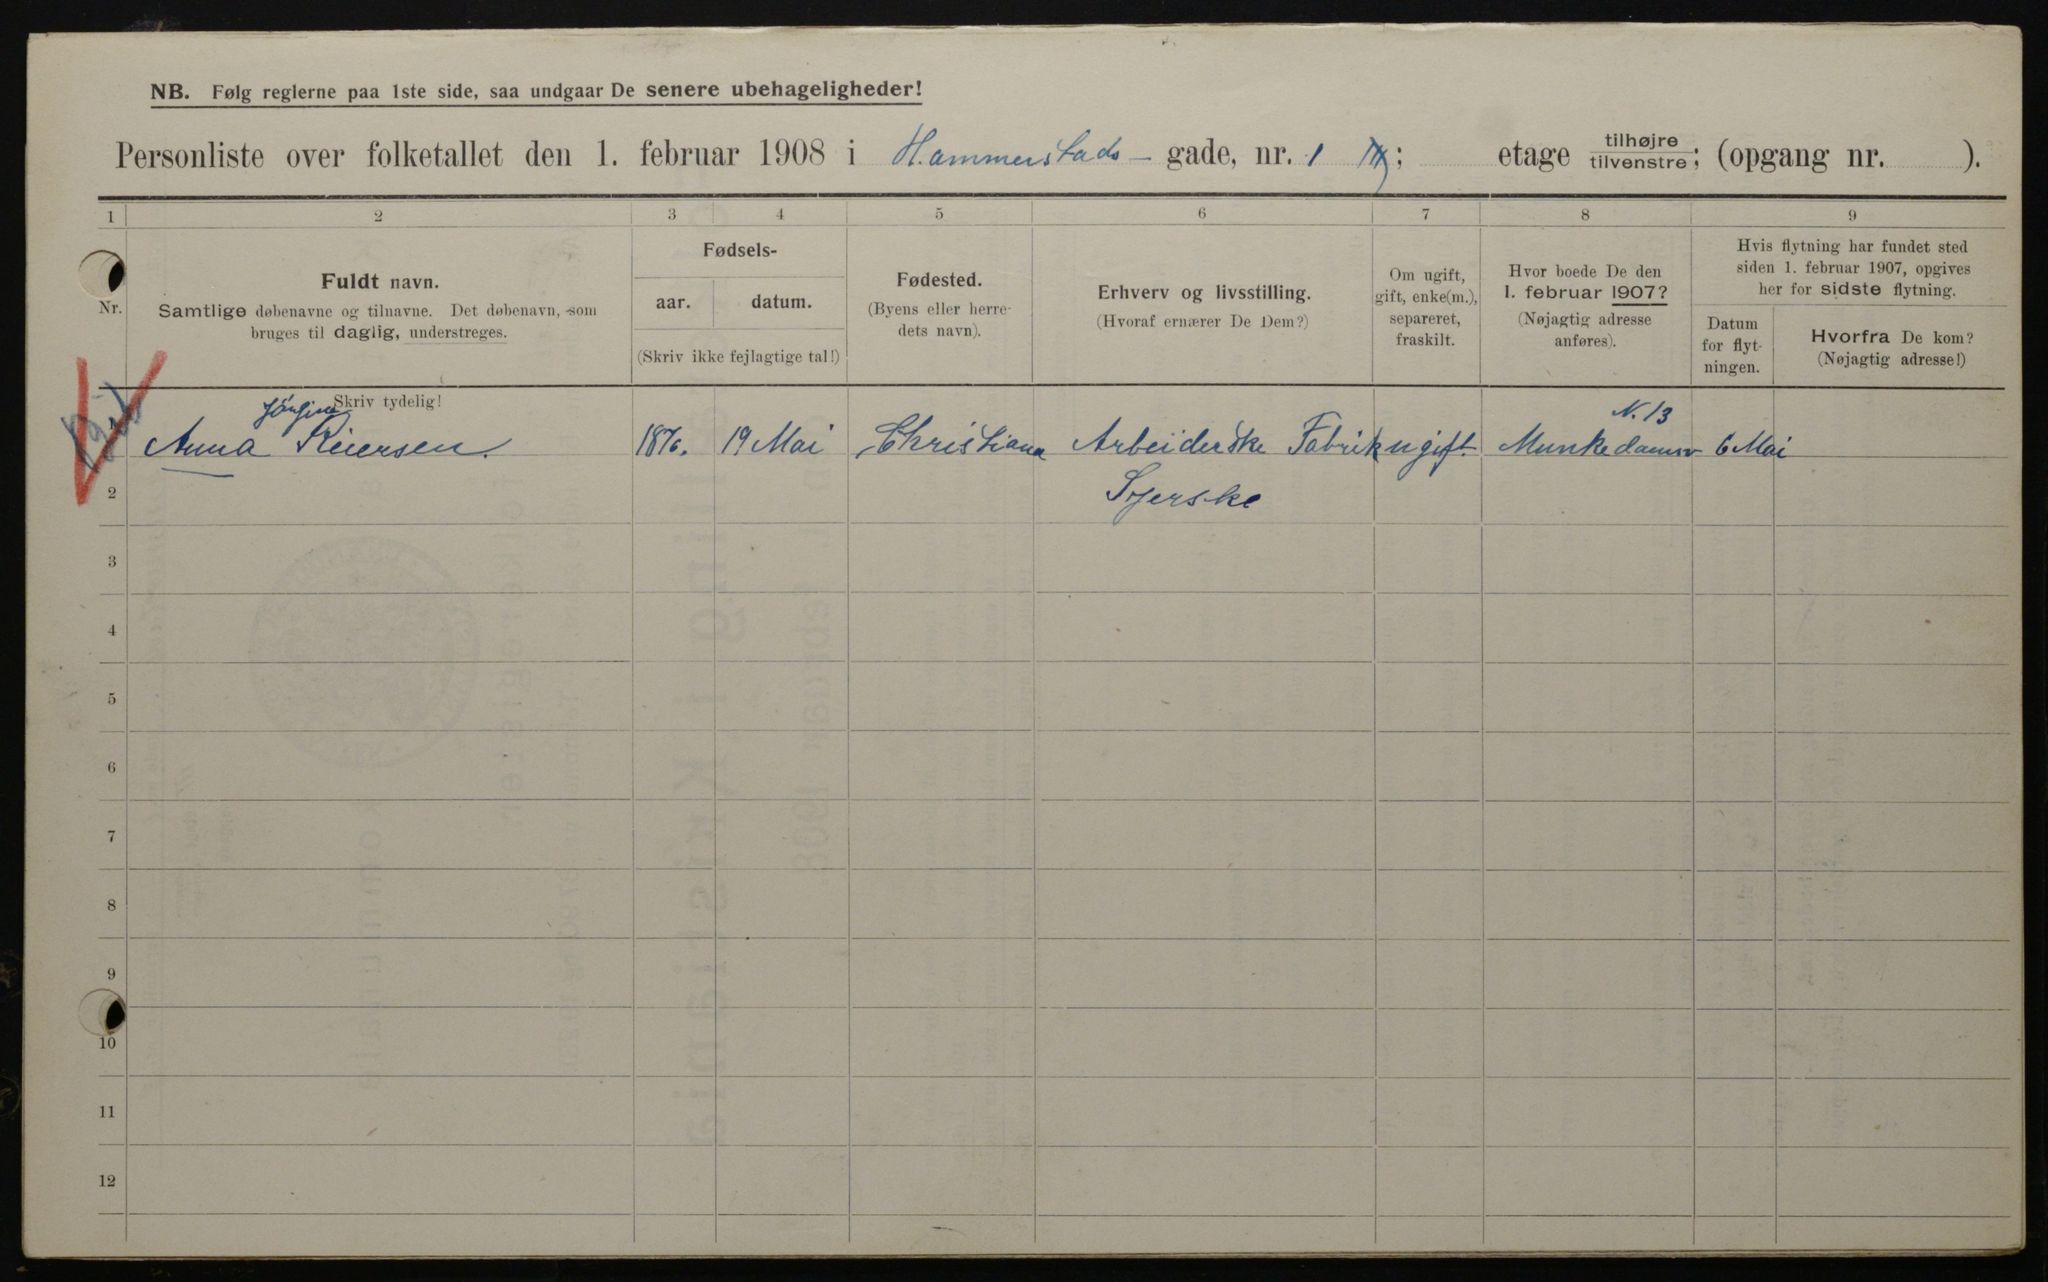 NB. Følg reglerne paa 1ste side, saa undgaar De senere ubehageligheder!
Personliste over folketallet den 1. februar 1908 i Hammerstads- gade, nr. 1 ; etage tilhøjre tilvenstre; (opgang nr. ).
1 2 3 4 5 6 7 8 9
Nr.
Fuldt navn.
Samtlige døbenavne og tilnavne. Det døbenavn, som
bruges til daglig, understreges.
Skriv tydelig!
Fødsels-
aar. datum.
(Skriv ikke fejlagtige tal!)
Fødested.
(Byens eller herre-
dets navn).
Erhverv og livsstilling.
(Hvoraf ernærer De Dem?)
Om ugift,
gift, enke(m.),
separeret,
fraskilt.
Hvor boede De den
1. februar 1907?
(Nøjagtig adresse
anføres).
Hvis flytning har fundet sted
siden 1. februar 1907, opgives
her for sidste flytning.
Datum
for flyt-
ningen.
Hvorfra De kom?
(Nøjagtig adresse!)
Jørgine N. 13
1 Anna Reiersen. 1876. 19 Mai Christiana Arbeiderske Fabrik ugift. Munkedamsv 6 Mai
2 Syerske
3
4
5
6
7
8
9
10
11
12